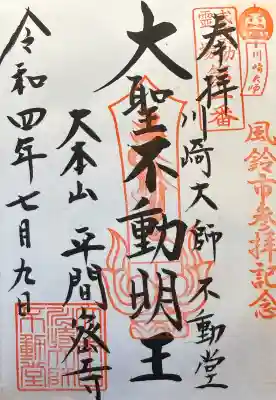 川崎大師
風鈴市参拝記念
奉拝
川崎大師 不動堂
大聖不動明王
大本山 平間密寺
令和四年七月九日